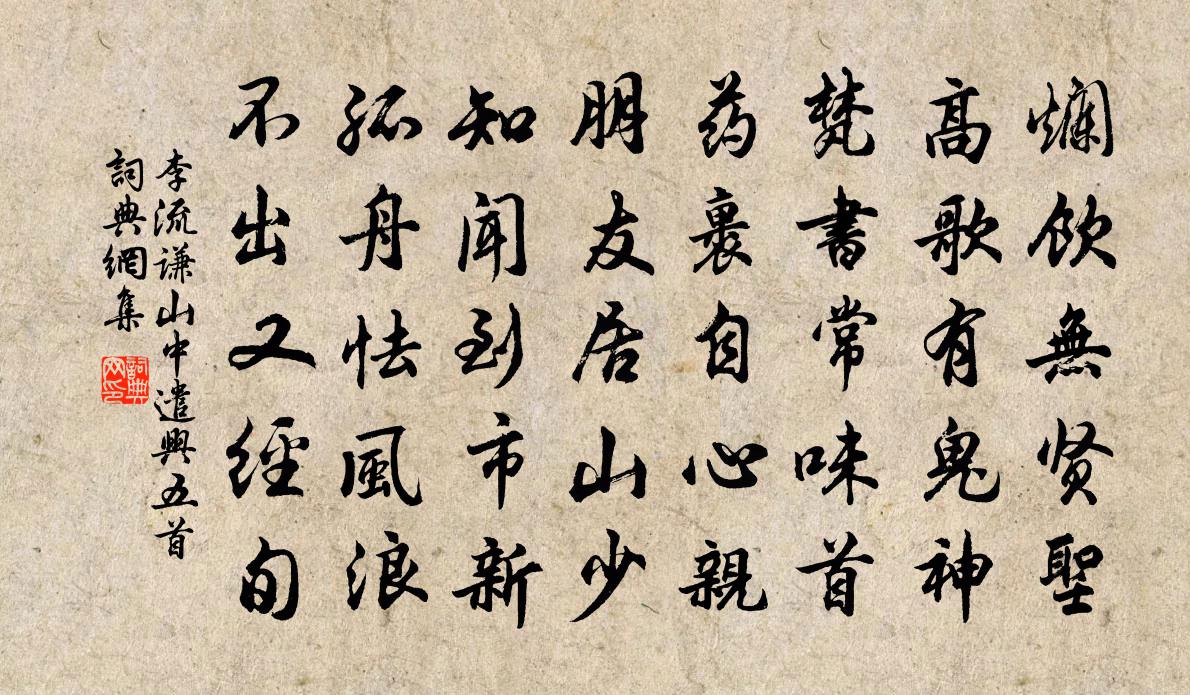 爛飲無贤聖
高歌有鬼神
梵書常味首
药裹自心親
朋友居山少
知聞到市新
孤舟怯風浪
不出又經旬
李流谦山中遣興五首
詞典網集
詞典
网印